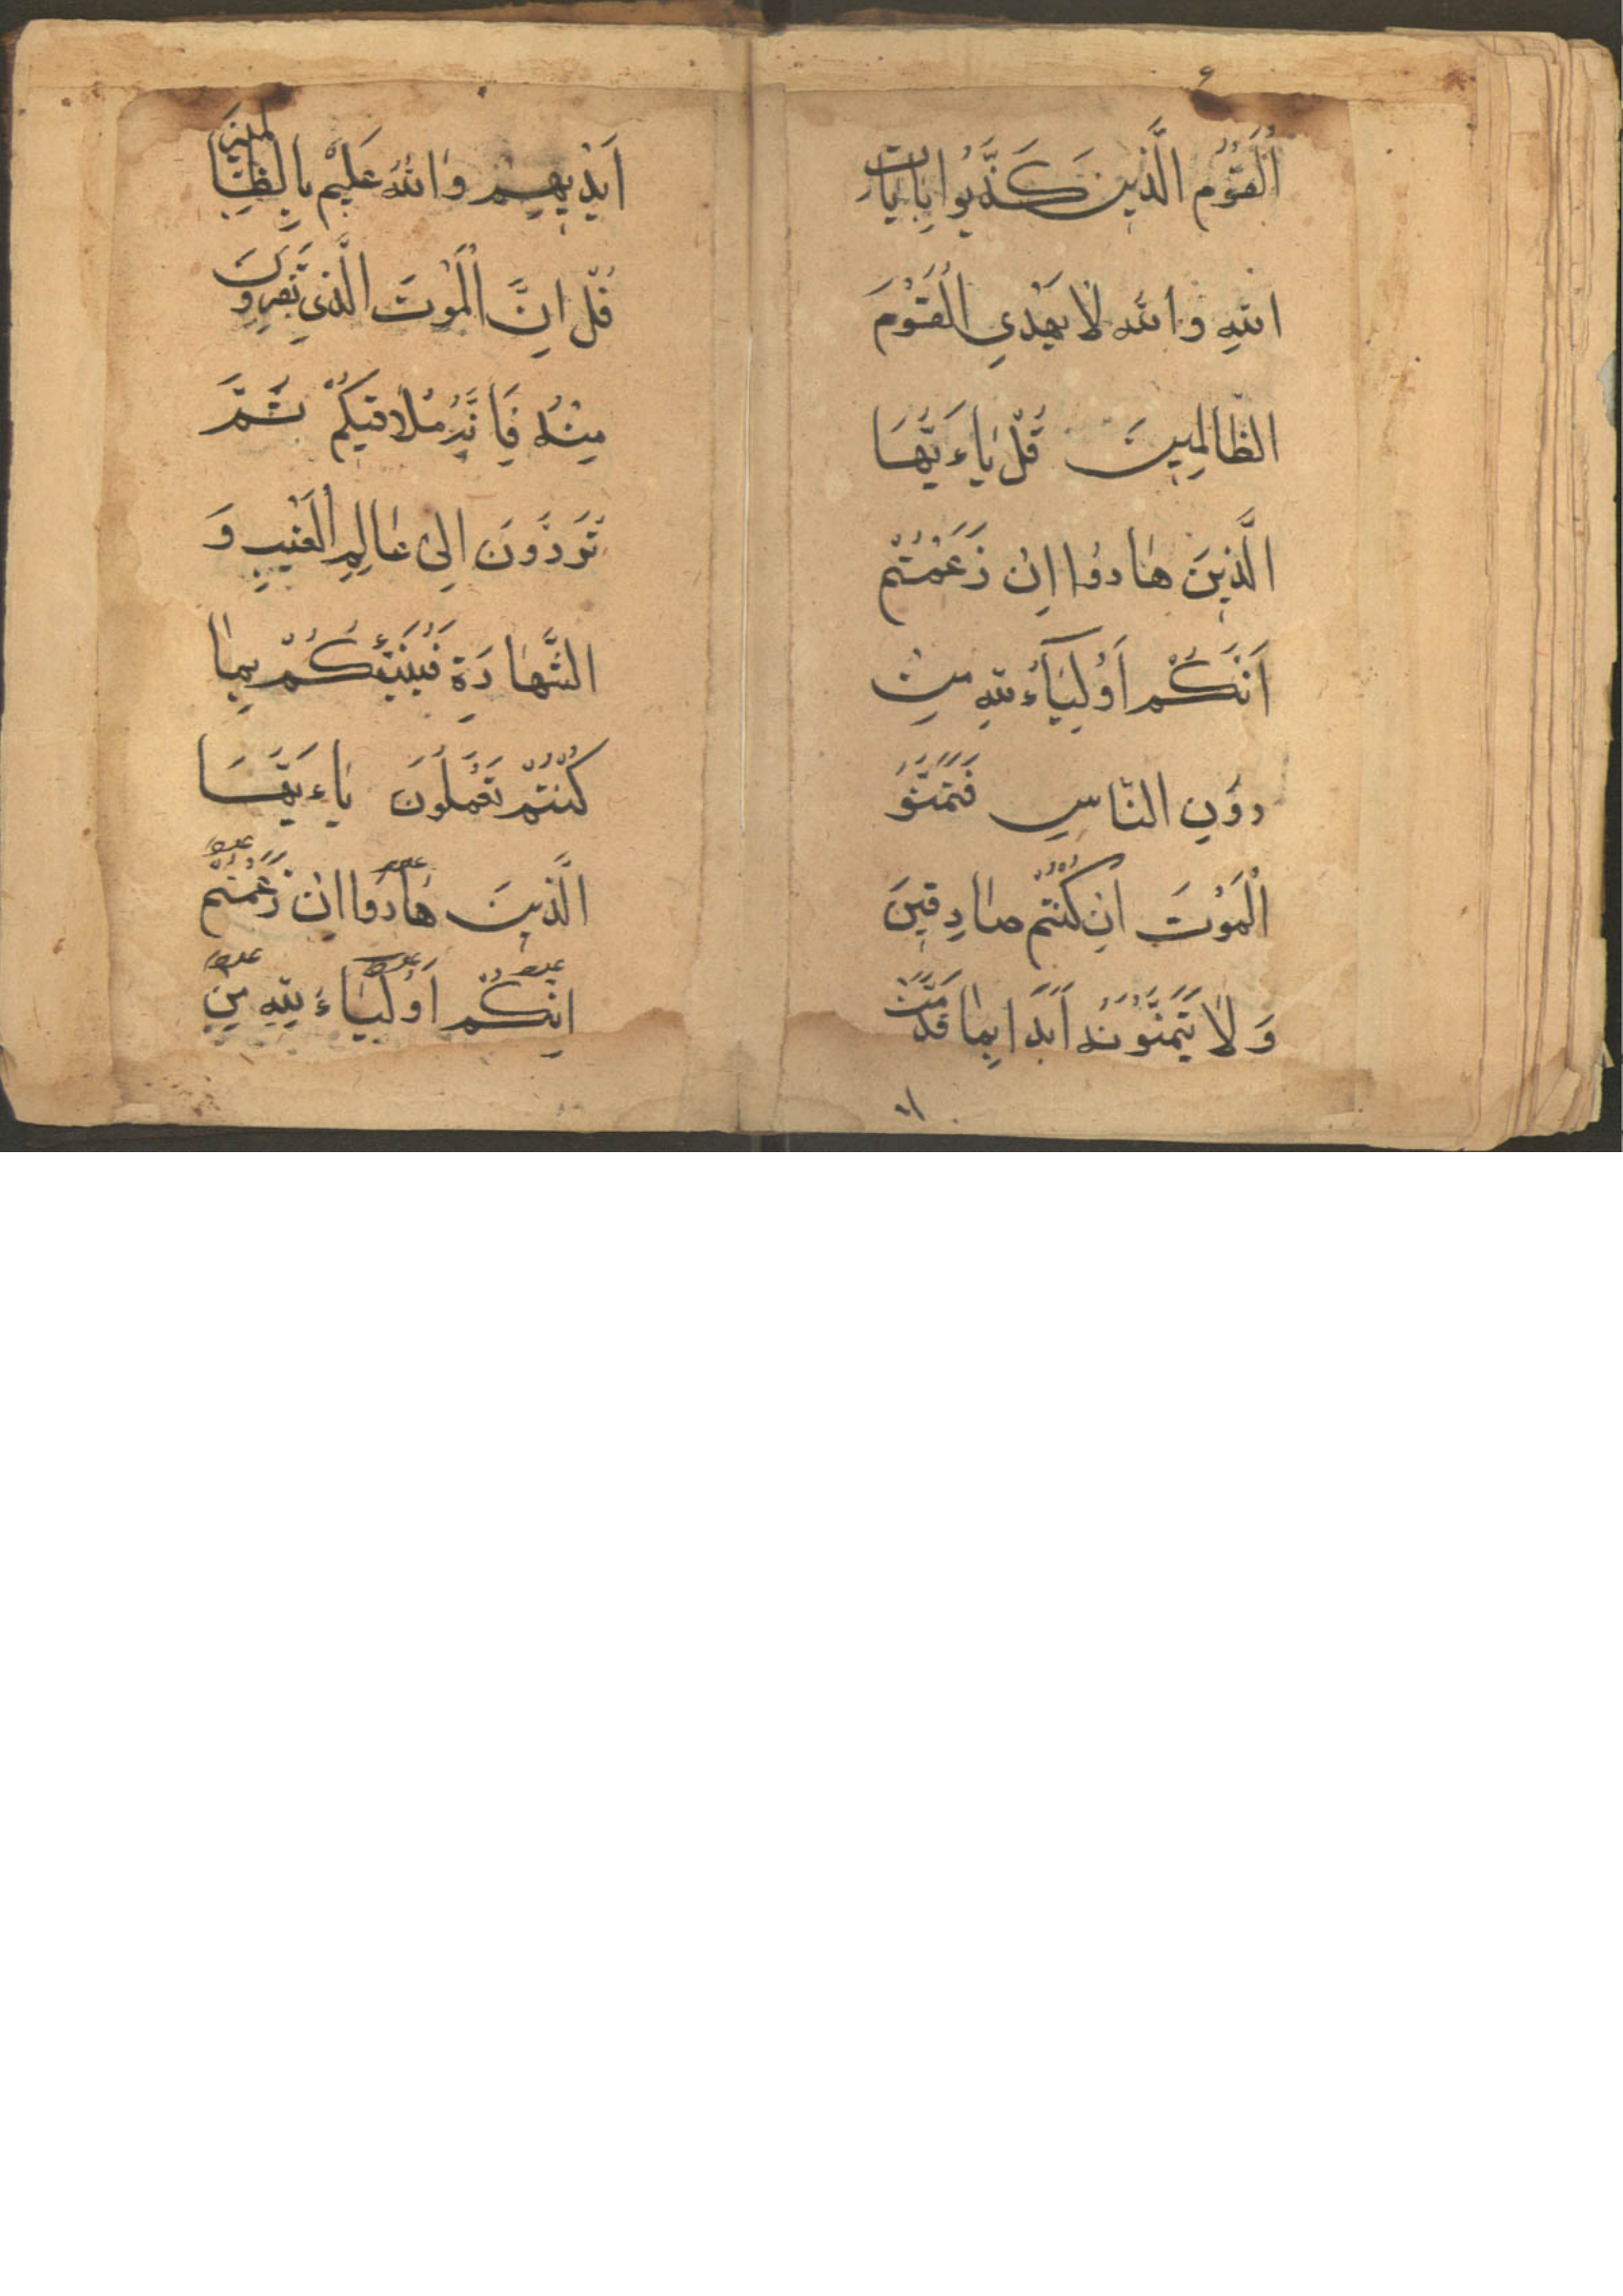 اَلْقَوْمِ الَّذِينَ كَذَّبُوا بِاٰيَاتِ
اللهِ وَاللهُ لَا يَهْدِي الْقَوْمَ
الظَّالِمِينَ قُلْ يَاءَيُّهَا
الَّذِينَ هَادُوا اِنْ زَعَمْتُمْ
اَنَّكُمْ اَوْلِيَآءُ لِلّٰهِ مِنْ
دُوْنِ النَّاسِ فَتَمَنَّوُ
الْمَوْتَ اِنْ كُنْتُمْ صَادِقِينَ
وَلَا يَتَمَنَّوْنَهُ اَبَدًا بِمَا قَدَّمَتْ
اَيْدِيهِمْ وَاللهُ عَلِيْمٌ بِالظَّالِمِينَ
قُلْ اِنَّ الْمَوْتَ الَّذِي تَفِرُّونَ
مِنْهُ فَاِنَّهُ مُلَاقِيكُمْ ثُمَّ
تُرَدُّونَ اِلٰى عَالِمِ الْغَيْبِ وَ
الشَّهَادَةِ فَيُنَبِّئُكُمْ بِمَا
كُنْتُمْ تَعْمَلُونَ يَاءَيُّهَا
الَّذِينَ هَادُوا اِنْ زَعَمْتُمْ
اِنَّكُمْ اَوْلِيَاءُ لِلّٰهِ مِنْ